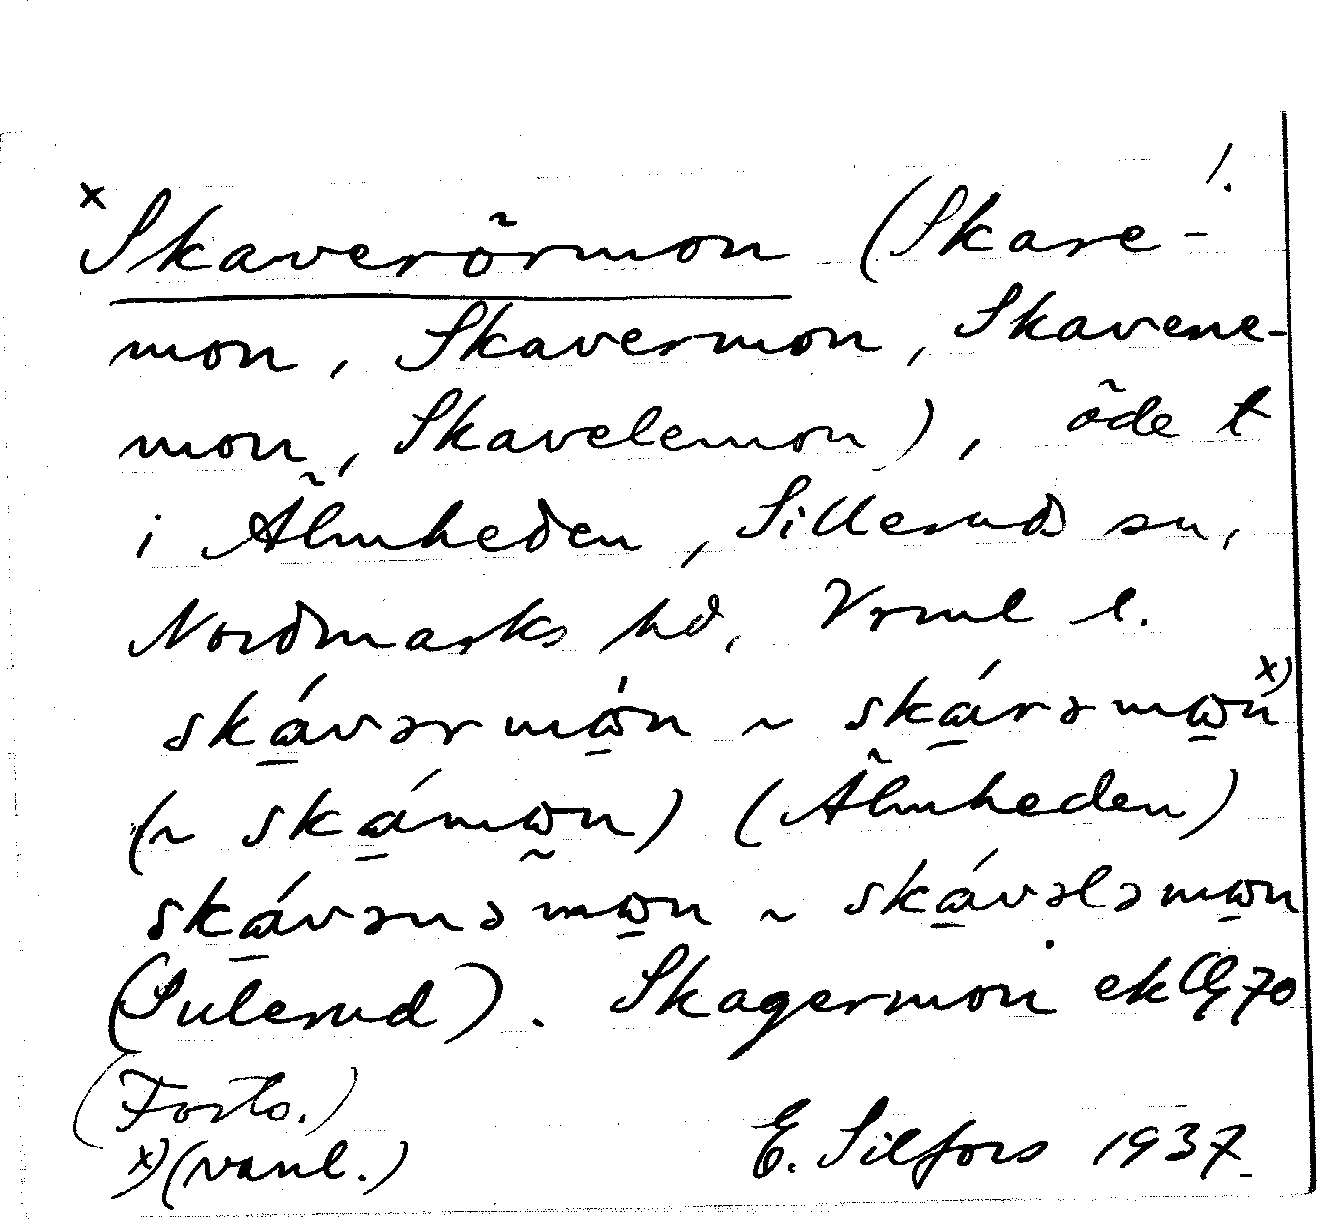 1.
x Skaverörmon (Skare-
mon, Skavermon, Skavene-
mon, Skavelemon), öde t
i Älmheden, Sillerud sn,
Nordmarks hd, Vrml l.
skávərmòn ~ skárəmòn x)
(~ skámòn) (Älmheden)
skávənəmòn ~ skávələmòn
(Sulerud). Skagermon ek 70
(Forts.)
x) (vanl.) E. Silfors 1937